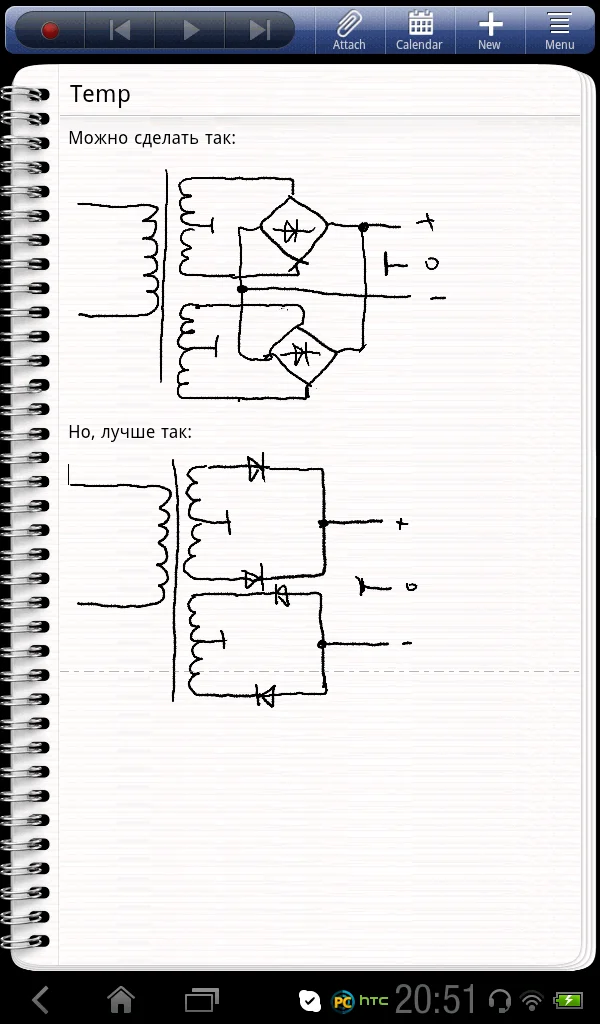 Attach Calendar New Menu
Temp
Можно сделать так:
+
0
-
Но, лучше так:
+
0
-
PC hTC 20:51